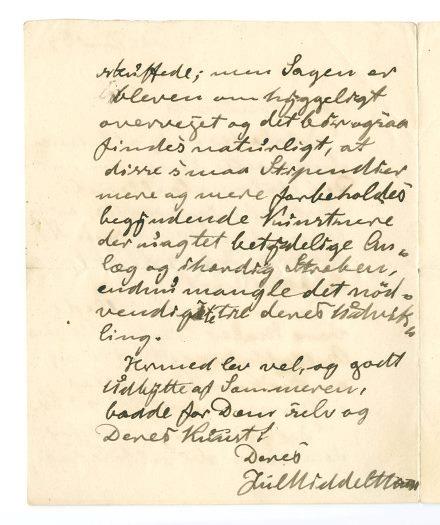 skuffede; men Sagen er
bleven omhyggeligt
overveiet og det bør ogsaa
findes naturligt, at
disse smaa Stipendier
mere og mere forbeholdes
begyndende Kunstnere
der uagtet betydelige An„
læg og ihærdig Stræben,
endnu mangle det nød„
vendigste til deres Udvik„
ling.
Hermed lev vel, og godt
Udbytte af Sommeren,
baade for Dem selv og
Deres Kunst!
Deres
Jul Middelthun